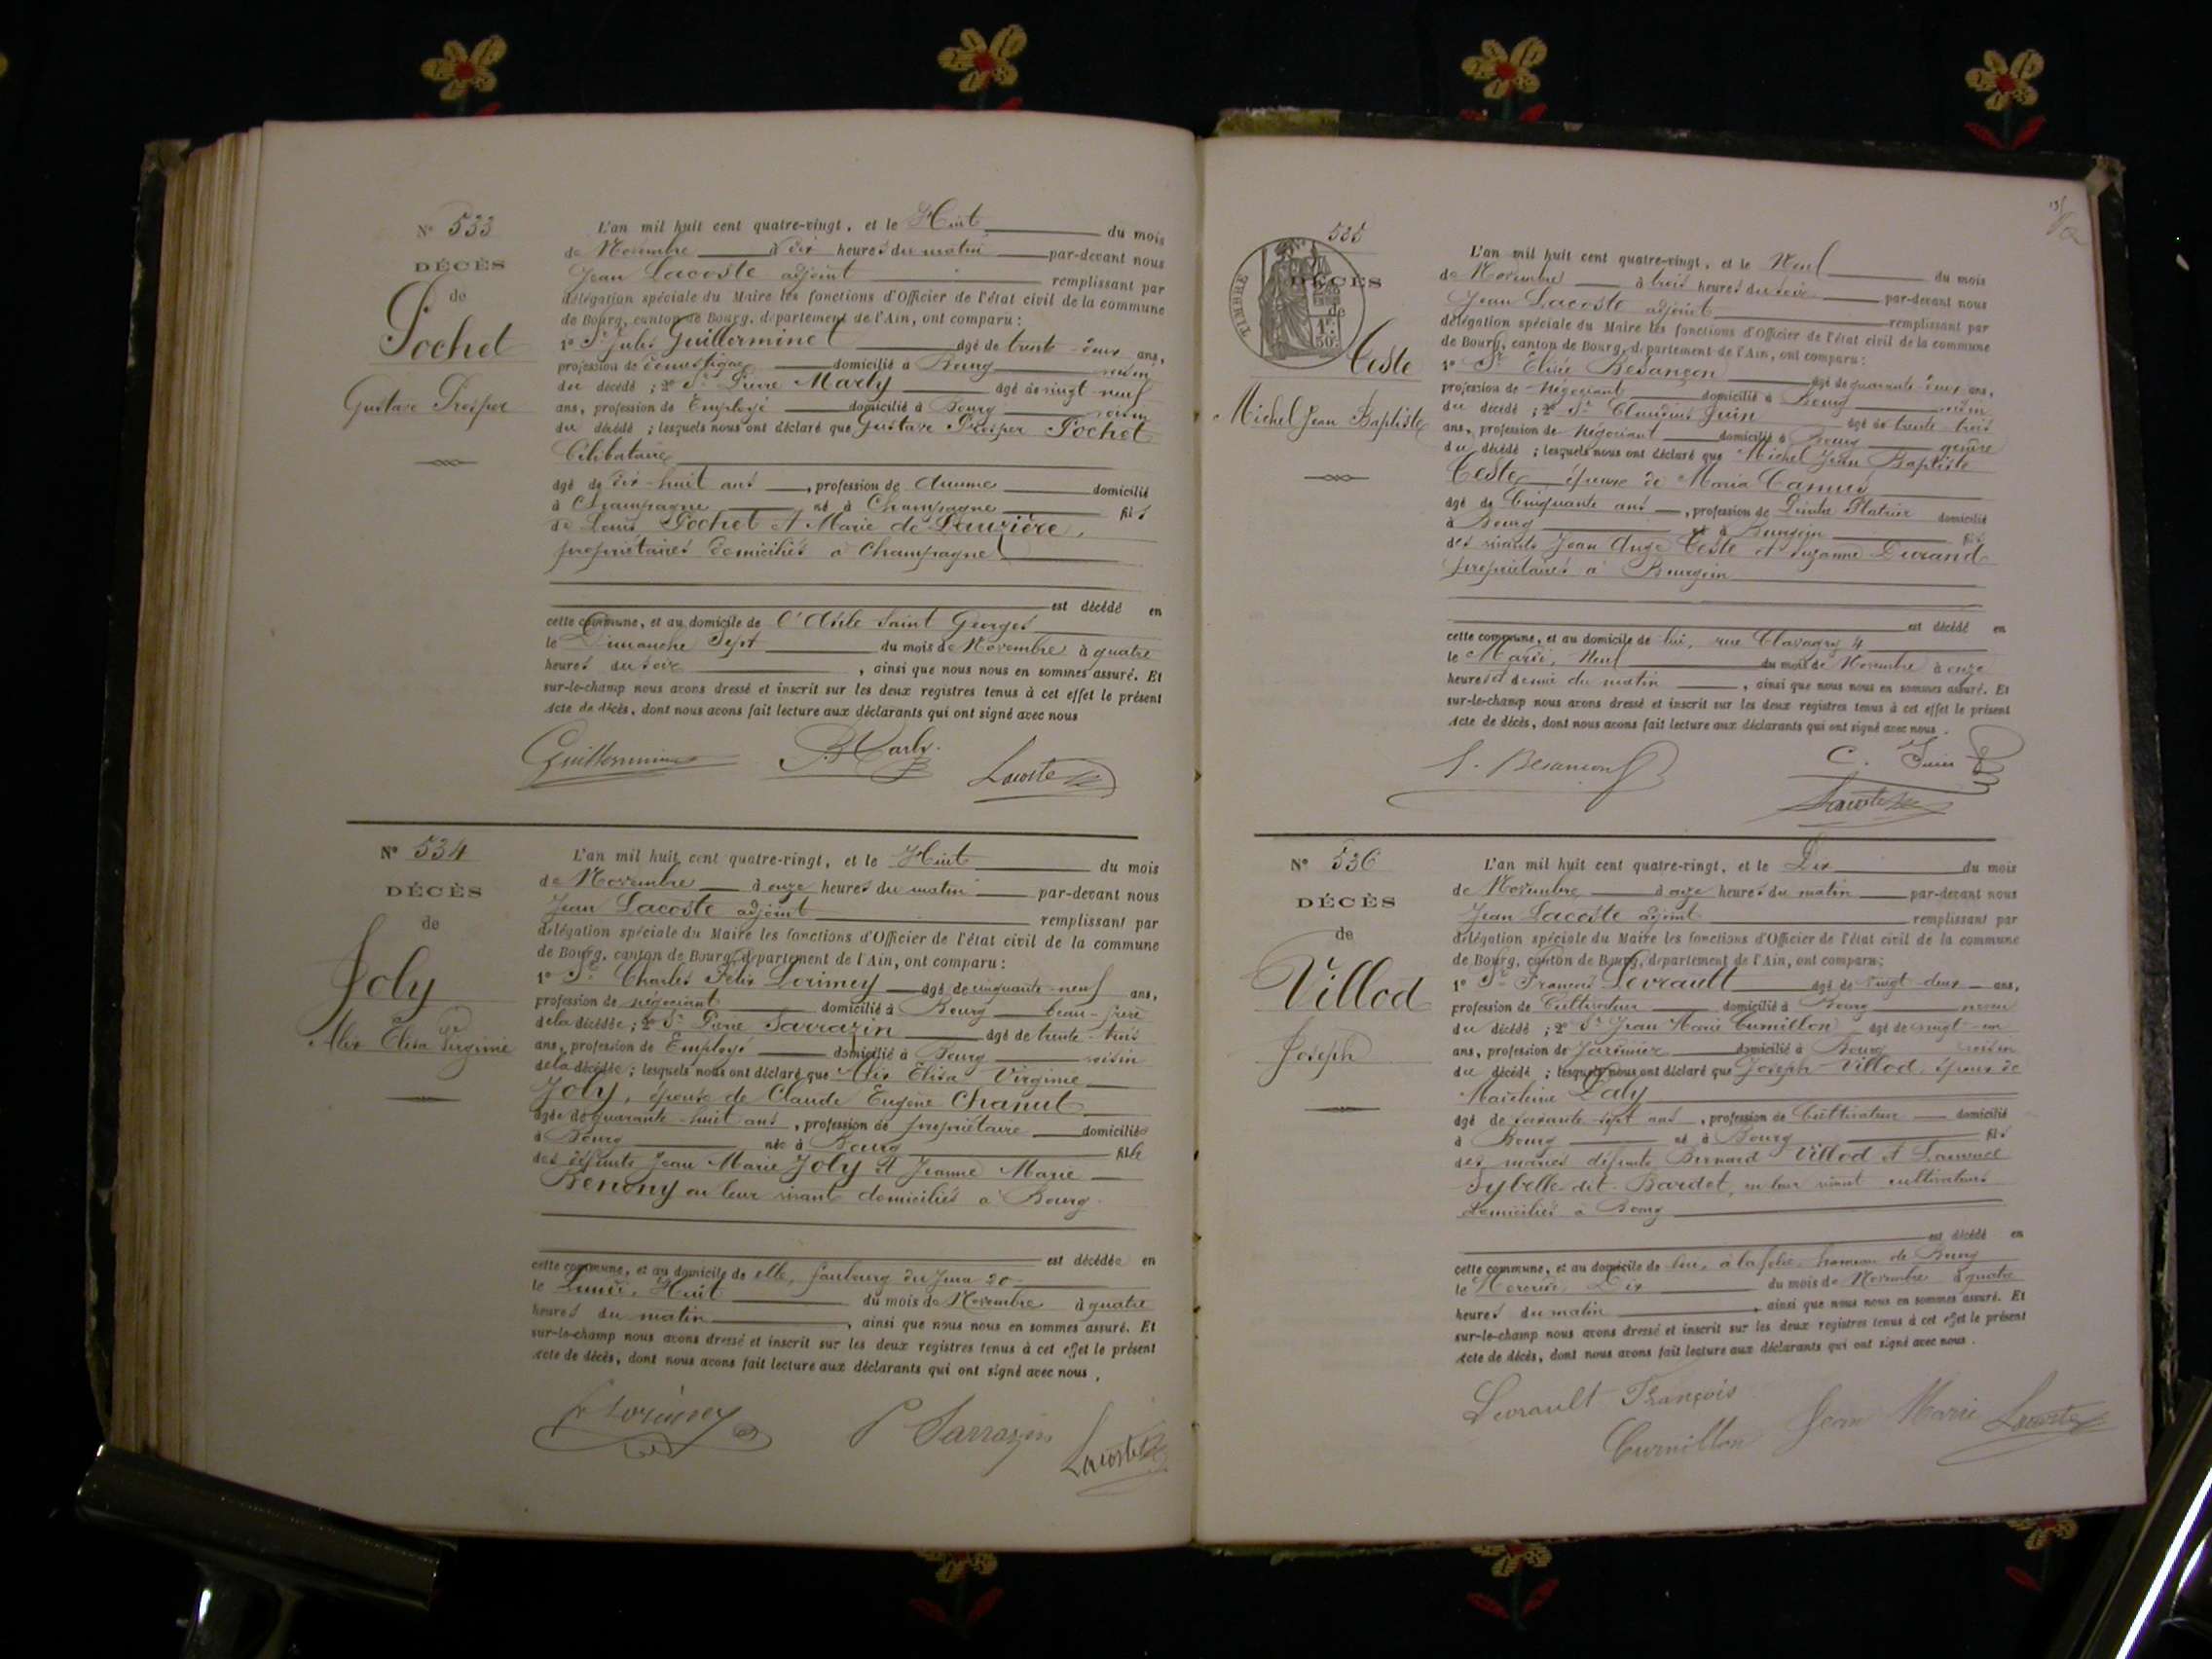 N° 533
DÉCÈS
de
Pochet
Gustave Prosper
L'an mil huit cent quatre-vingt, et le Huit du mois
de Novembre à dix heures du matin par-devant nous
Jean Lacoste adjoint remplissant par
délégation spéciale du Maire les fonctions d'Officier de l'état civil de la commune
de Bourg, canton de Bourg, département de l'Ain, ont comparu :
1° Sr Jules Guillerminet âgé de trente-deux ans,
profession de domestique domicilié à Bourg voisin
du décédé ; 2° Sr Pierre Marly âgé de vingt neuf
ans, profession de Employé domicilié à Bourg voisin
du décédé ; lesquels nous ont déclaré que Gustave Prosper Pochet
Célibataire
âgé de dix-huit ans, profession de Aucune domicilié
à Champagne né à Champagne fils
de Louis Pochet et Marie de Lauzière,
propriétaires domiciliés à Champagne
est décédé en
cette commune, et au domicile de l'Asile Saint Georges
le Dimanche Sept du mois de Novembre à quatre
heures du soir, ainsi que nous nous en sommes assuré. Et
sur-le-champ nous avons dressé et inscrit sur les deux registres tenus à cet effet le présent
Acte de décès, dont nous avons fait lecture aux déclarants qui ont signé avec nous
Guillerminet Marly Lacoste
N° 534
DÉCÈS
de
Joly
Alix Élisa Virginie
L'an mil huit cent quatre-vingt, et le Huit du mois
de Novembre à onze heures du matin par-devant nous
Jean Lacoste adjoint remplissant par
délégation spéciale du Maire les fonctions d'Officier de l'état civil de la commune
de Bourg, canton de Bourg, département de l'Ain, ont comparu :
1° Sr Charles Félix Lorimey âgé de cinquante-neuf ans,
profession de négociant domicilié à Bourg beau-frère
de la décédée ; 2° Sr Pierre Sarrazin âgé de trente-trois
ans, profession de Employé domicilié à Bourg voisin
de la décédée ; lesquels nous ont déclaré que Alix Élisa Virginie
Joly, épouse de Claude Eugène Chanut
âgée de quarante-huit ans, profession de propriétaire domiciliée
à Bourg née à Bourg fille
des défunts Jean Marie Joly et Jeanne Marie
Benony en leur vivant domiciliés à Bourg
est décédée en
cette commune, et au domicile de elle, faubourg du Jura 20
le Lundi, Huit du mois de Novembre à quatre
heures du matin, ainsi que nous nous en sommes assuré. Et
sur-le-champ nous avons dressé et inscrit sur les deux registres tenus à cet effet le présent
Acte de décès, dont nous avons fait lecture aux déclarants qui ont signé avec nous.
Lorimey P Sarrazin Lacoste
535
TIMBRE
DÉCÈS
de
Teste
Michel Jean Baptiste
L'an mil huit cent quatre-vingt, et le Neuf du mois
de Novembre à trois heures du soir par-devant nous
Jean Lacoste adjoint remplissant par
délégation spéciale du Maire les fonctions d'Officier de l'état civil de la commune
de Bourg, canton de Bourg, département de l'Ain, ont comparu :
1° Sr Besançon âgé de quarante-deux ans,
profession de Négociant domicilié à Bourg voisin
du décédé ; 2° Sr Claudius Juin âgé de trente trois
ans, profession de Négociant domicilié à Bourg gendre
du décédé ; lesquels nous ont déclaré que Michel Jean Baptiste
Teste époux de Maria Camus
âgé de Cinquante ans, profession de Peintre Platrier domicilié
à Bourg né à Bourgoin fils
des vivants Jean Ange Teste et Suzanne Durand
propriétaires à Bourgoin
est décédé en
cette commune, et au domicile de lui, rue Clavagry 4
le Mardi, Neuf du mois de Novembre à onze
heures et demie du matin, ainsi que nous nous en sommes assuré. Et
sur-le-champ nous avons dressé et inscrit sur les deux registres tenus à cet effet le présent
Acte de décès, dont nous avons fait lecture aux déclarants qui ont signé avec nous.
Besançon C. Juin
Lacoste
N° 536
DÉCÈS
de
Villod
Joseph
L'an mil huit cent quatre-vingt, et le Dix du mois
de Novembre à onze heures du matin par-devant nous
Jean Lacoste adjoint remplissant par
délégation spéciale du Maire les fonctions d'Officier de l'état civil de la commune
de Bourg, canton de Bourg, département de l'Ain, ont comparu :
1° Sr François Levrault âgé de vingt-deux ans,
profession de Cultivateur domicilié à Bourg
du décédé ; 2° Sr Jean Marie Curnillon âgé de vingt-un
ans, profession de Jardinier domicilié à Bourg voisin
du décédé ; lesquels nous ont déclaré que Joseph Villod, époux de
Madeleine Laly
âgé de soixante-sept ans, profession de Cultivateur domicilié
à Bourg né à Bourg fils
des mariés défunts Bernard Villod et
Sybelle dit Bardet, en leur vivant cultivateurs
domiciliés à Bourg
est décédé en
cette commune, et au domicile de lui, à la folie hameau de Bourg
le Mercredi Dix du mois de Novembre à quatre
heures du matin, ainsi que nous nous en sommes assuré. Et
sur-le-champ nous avons dressé et inscrit sur les deux registres tenus à cet effet le présent
Acte de décès, dont nous avons fait lecture aux déclarants qui ont signé avec nous.
Levrault François
Curnillon Jean Marie Lacoste